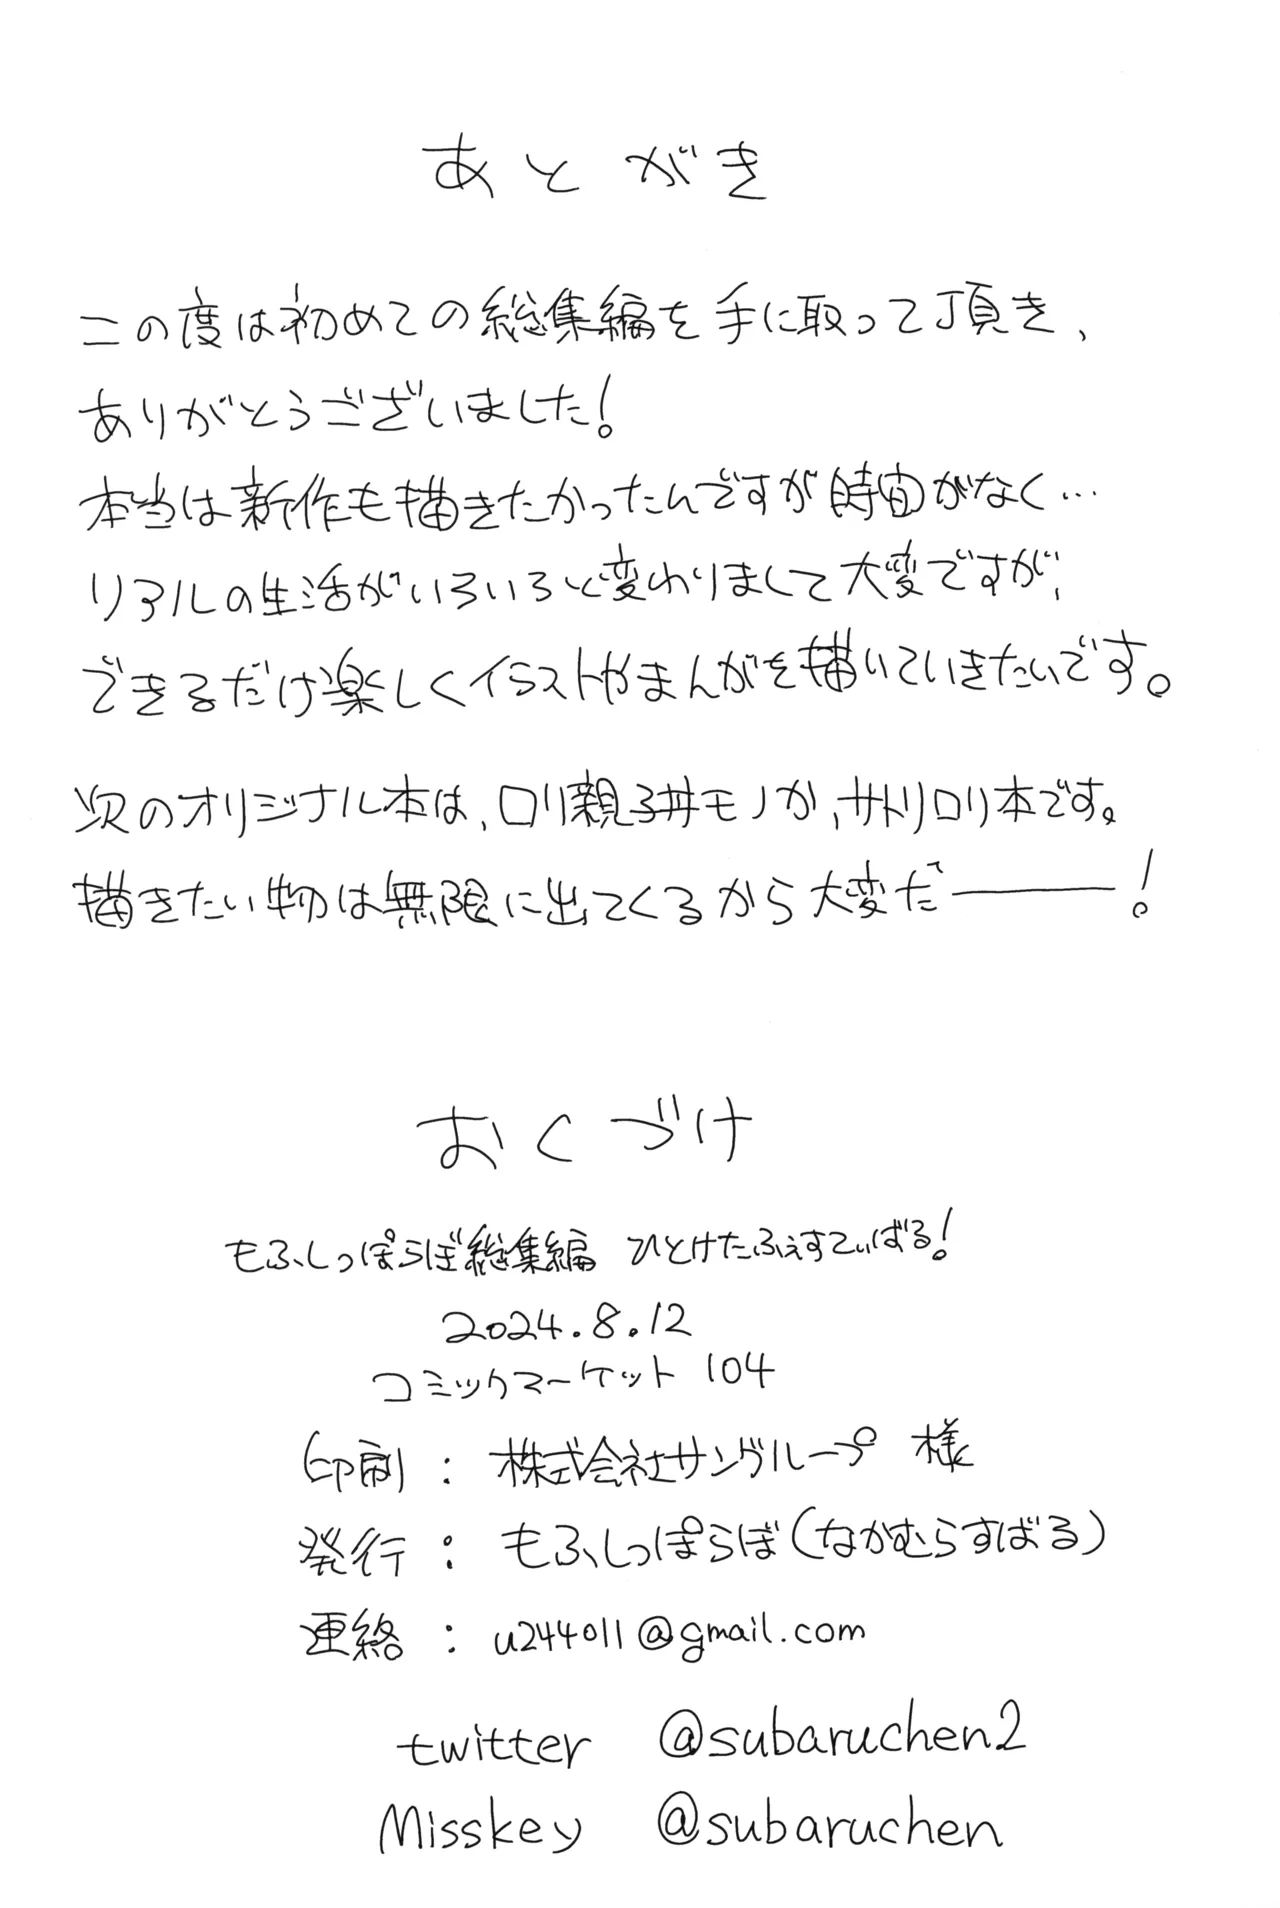 あとがき
この度は初めての総集編を手に取って頂き、
ありがとうございました!
本当は新作も描きたかったんですが時間がなく…
リアルの生活がいろいろと変わりまして大変ですが、
できるだけ楽しくイラストやまんがを描いていきたいです。
次のオリジナル本は、ロリ親子丼モノか、サトリロリ本です。
描きたい物は無限に出てくるから大変だ――!
おくづけ
もふしっぽらぼ総集編 ひとけたふぇすてぃばる!
2024.8.12
コミックマーケット 104
印刷 : 株式会社サングループ 様
発行 : もふしっぽらぼ(なかむらすばる)
連絡 : u244011@gmail.com
twitter @subaruchen2
Misskey @subaruchen